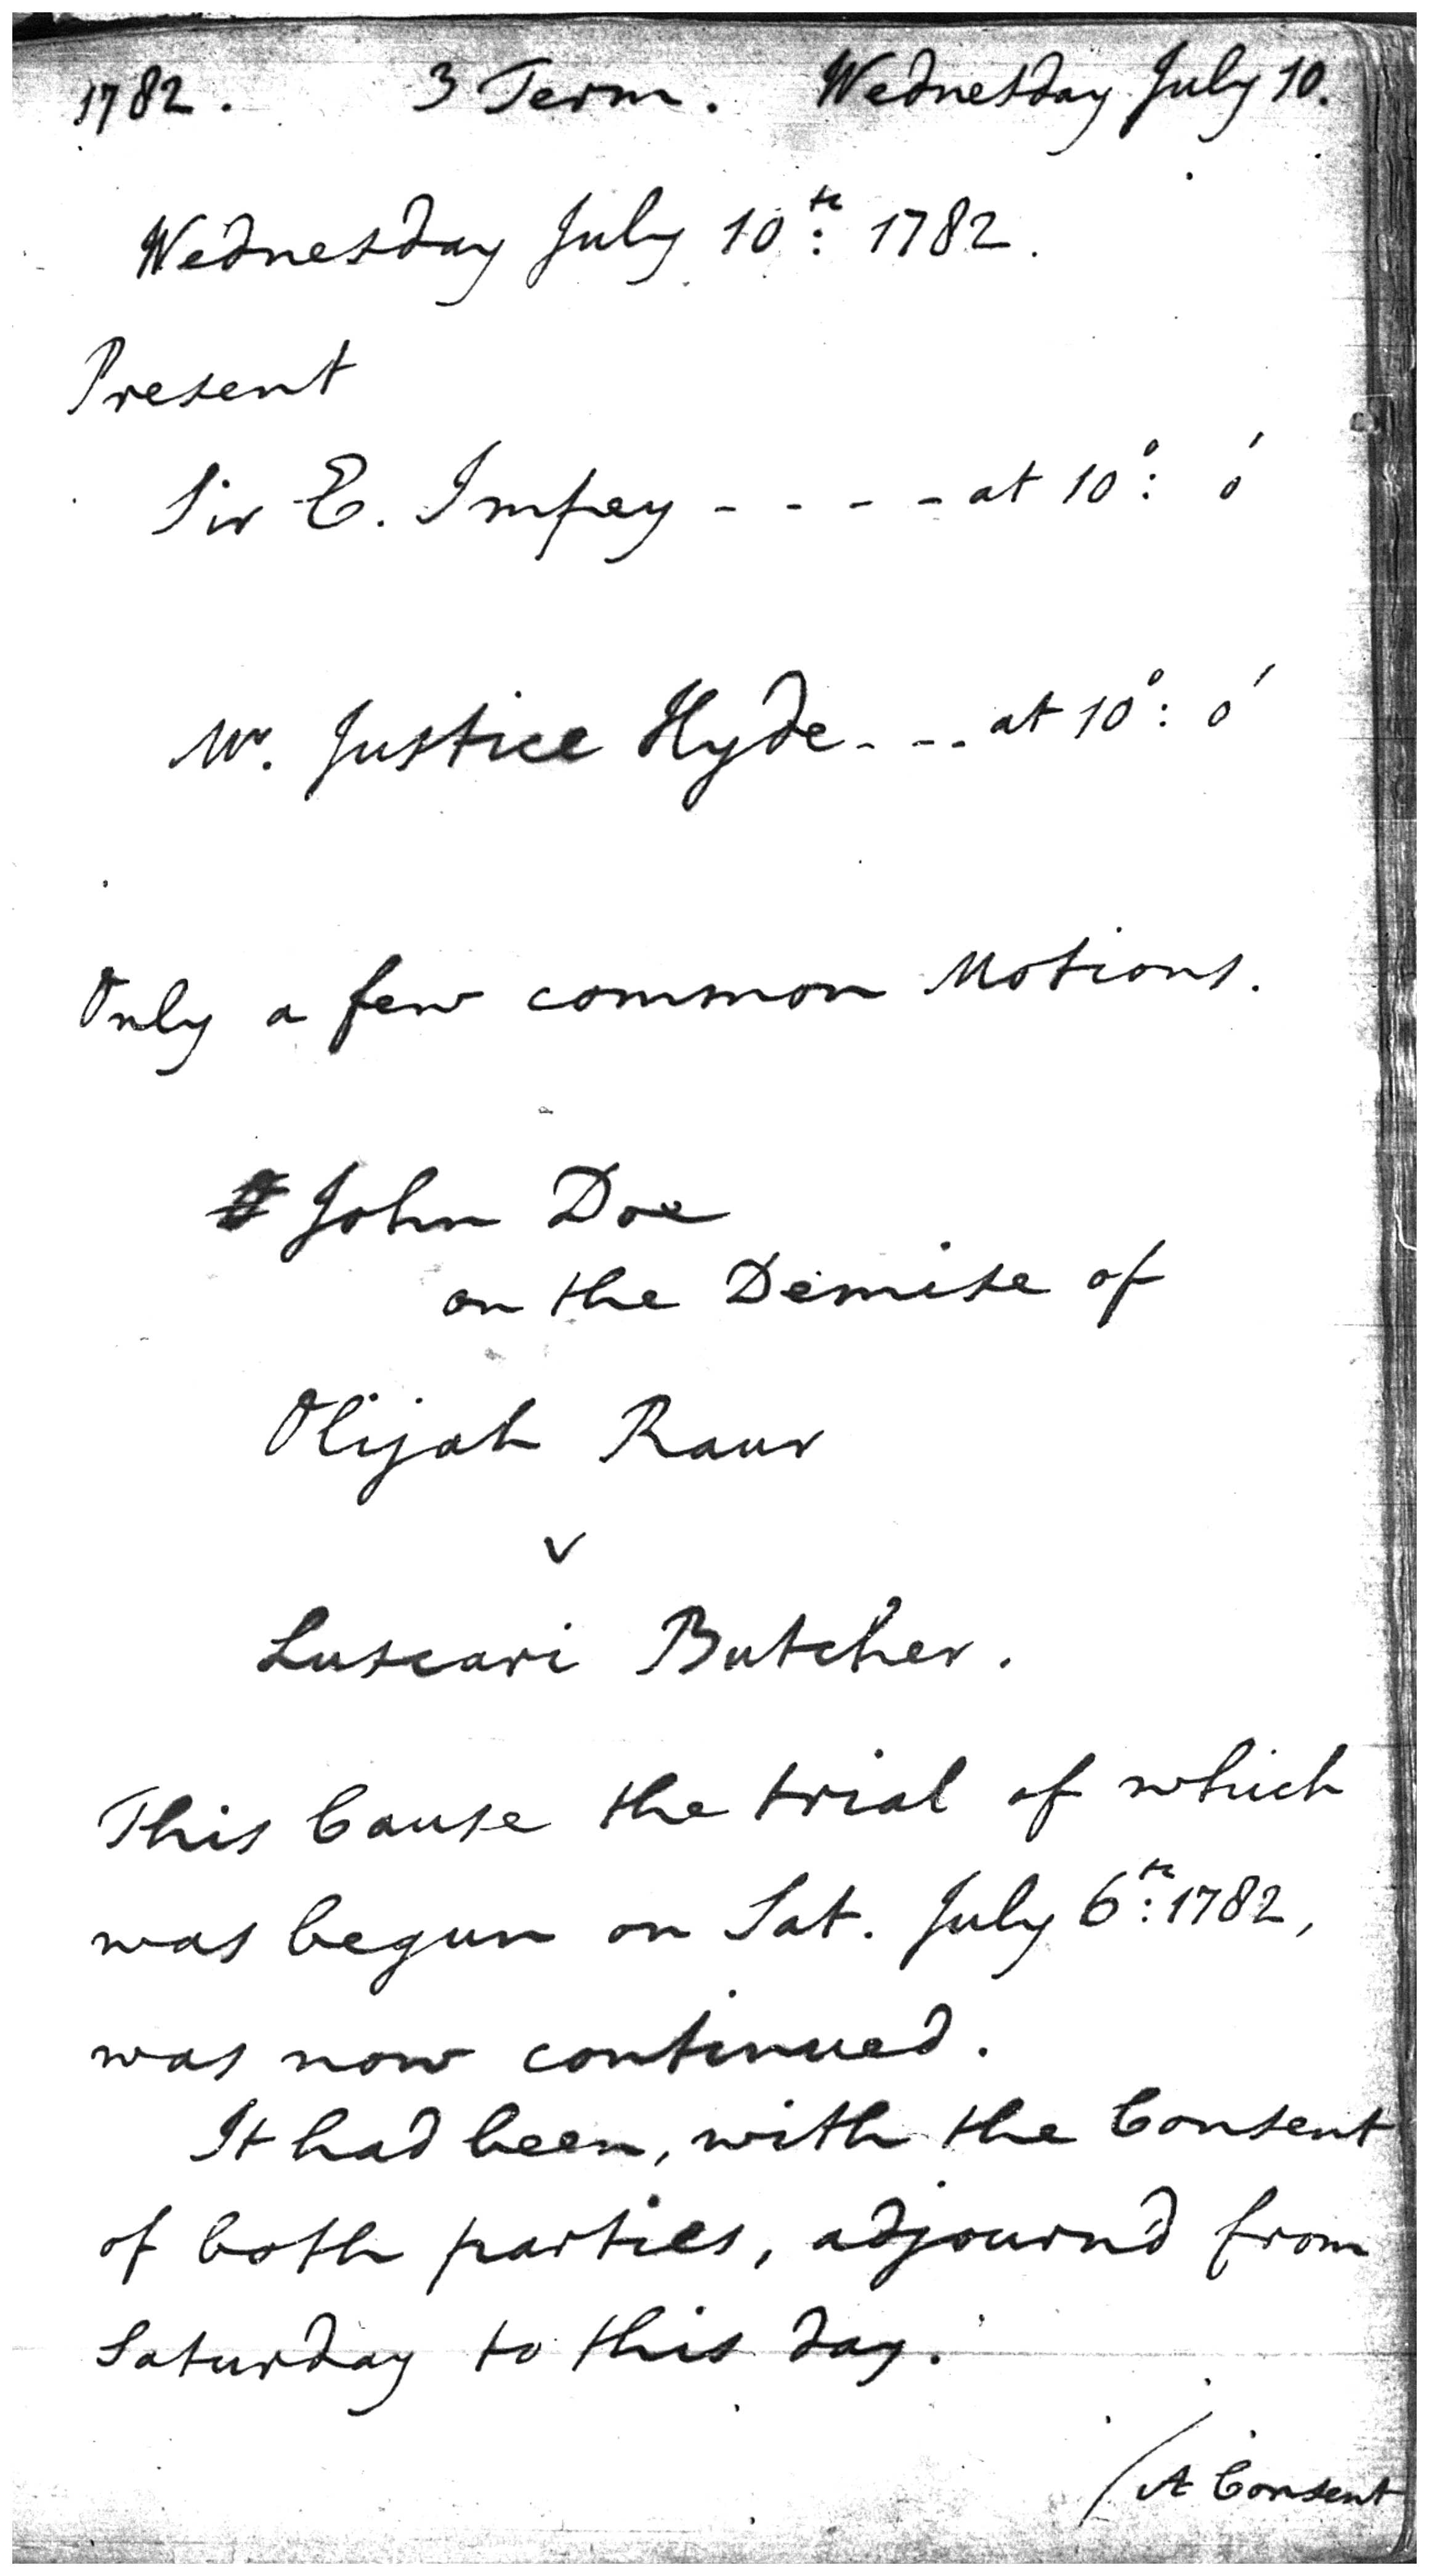 1782. 3 Term. Wednesday July 10.
Wednesday July 10th: 1782.
Present
Sir E. Impey - - - - at 10°: 0'
Mr. Justice Hyde - - - at 10°: 0'
Only a few common Motions.
John Doe
on the Demise of
Olijah Raur
v
Luscari Butcher.
This Cause the trial of which
was begun on Sat. July 6th: 1782,
was now continued.
It had been, with the Consent
of both parties, adjournd from
Saturday to this day.
(A Consent